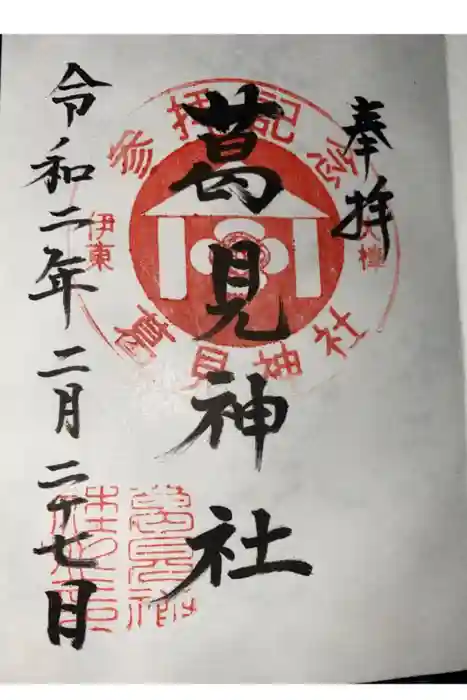 奉拝
葛見神社
令和二年二月二十七日
参拝記念
伊東
大樟
葛見神社